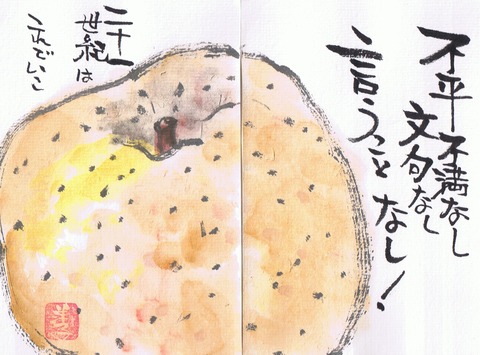 不平不満なし
文句なし
言うことなし！
二十一
世紀は
これでいこ